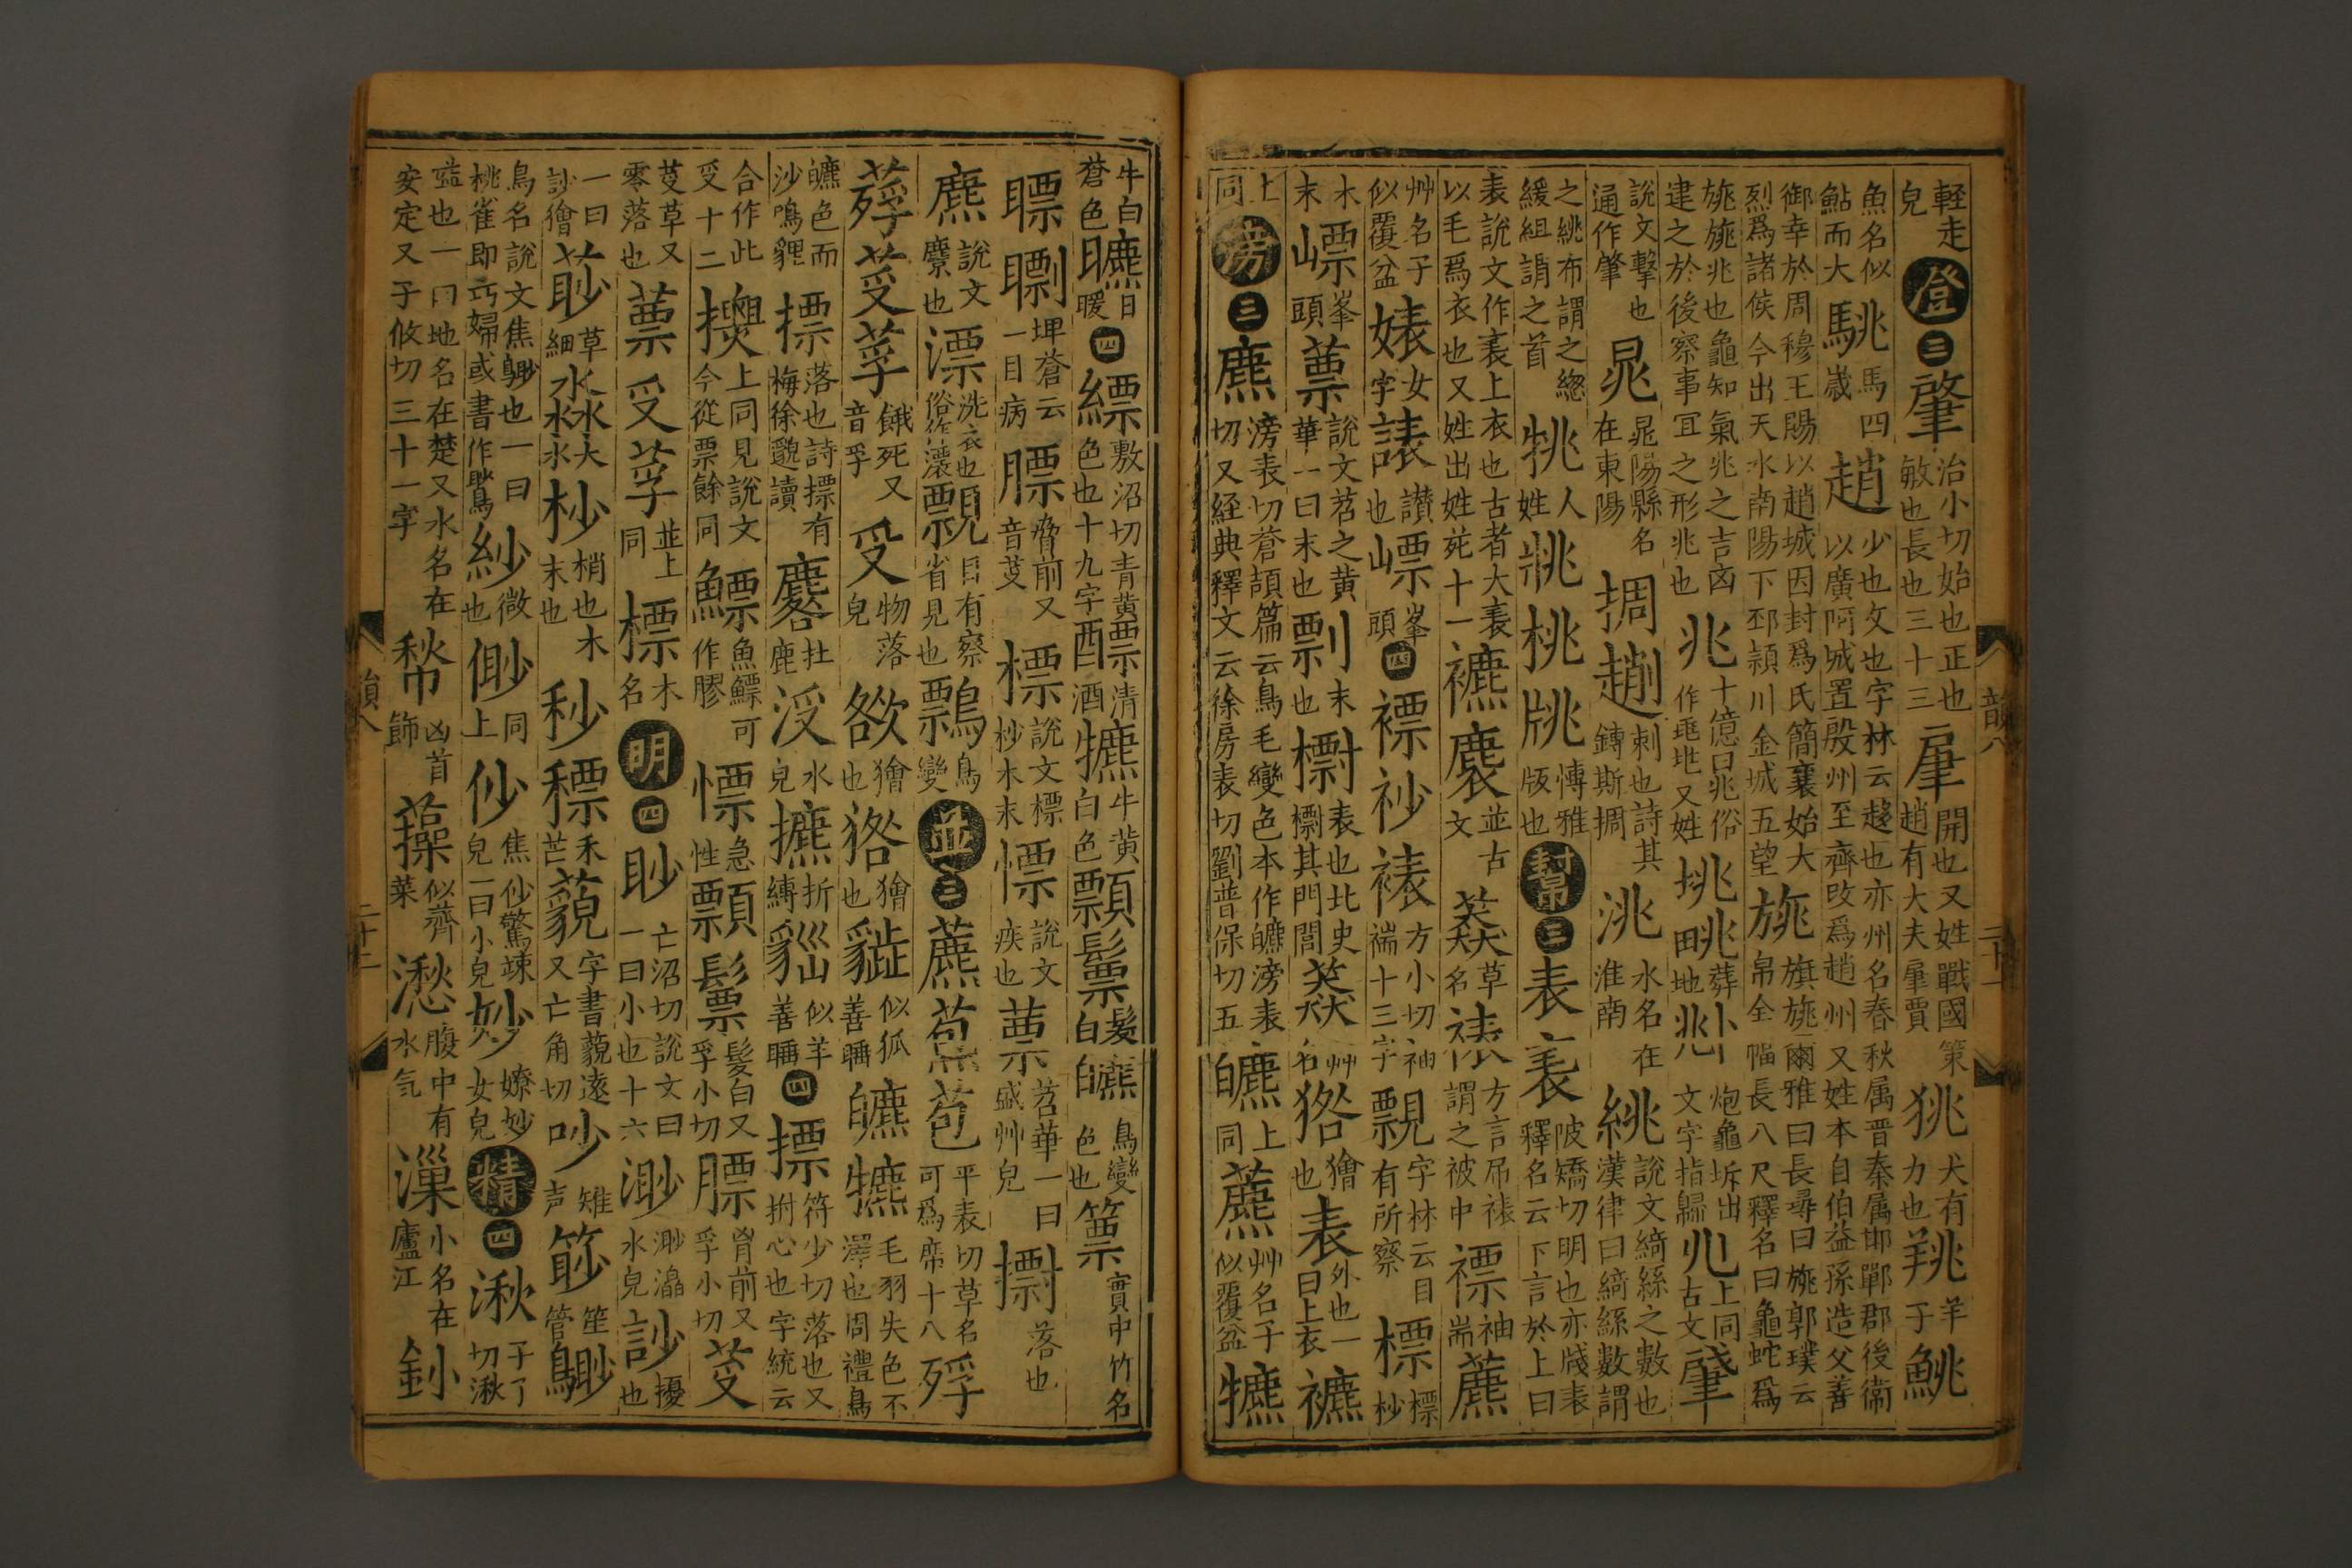 輕走皃澄三肇治小切始也正也敏也長也三十三肁開也又姓戰國策趙有大夫肁賈狣犬有力也羜羊子鮡
魚名似鮎而大駣馬四歲趙少也又也字林云趍也亦州名春秋属晋秦属邯鄲郡後衛以廣阿城置殷州至齊改爲趙州又姓本自伯益孫造父善
御幸於周穆王賜以趙城因封爲氏簡襄始大烈爲諸侯今出天水南陽下邳頴川金城五望旐旗旐爾雅曰長尋曰旐郭璞云帛全幅長八尺釋名曰龜蛇爲
旐旐兆也龜知氣兆之吉凶建之於後察事冝之形兆也兆十億曰兆俗作𠧞又姓挑㫰葬地𠧞炮龜坼出文字指歸兆上同古文肈
說文擊也通作肇晁晁陽縣名在東陽挶𧻙刺也詩其鏄斯挶洮水名在淮南絩說文綺絲之數也漢律曰綺絲數謂
之絩布謂之緫緩組謂之首㸠人姓𤕷桃㸠愽雅版也幫三表𧘝陂矯切明也亦牋表釋名云下言於上曰
表說文作𧘝上衣也古者大𧘝以毛爲衣也又姓出姓苑十一𧝪𧞫並古文𦿉草名裱方言帍裱謂之被巾褾袖耑藨
艸名子似覆盆婊女字諘讃也嶛峯頭四褾𧘡裱方小切袖端十三字𧡪字林云目有所察標標杪
木末㟽峯頭𦾑說文苕之黄華一曰末也剽末也㯹表也北史㯹其門閭猋艸名㹾獪也表外也一曰上衣𧝪
上同滂三麃滂表切蒼頡篇云鳥毛變色本作皫滂表切又経典釋文云徐房表切劉普保切五皫上同藨艸名子似覆盆犥
牛白蒼色㬓日暖四縹敷沼切青黄色也十九字醥清酒犥牛黄白色顠鬗髮白皫鳥變色也篻實中竹名
瞟瞟埤蒼云一目病膘脅前又音芟標說文標杪木末慓說文疾也𦾑苕華一曰盛艸皃摽落也
麃說文麞也漂洗衣也俗作㶾𧡪目有察省見也鷅鳥變並三藨𦸼苞平表切草名可爲席十八殍
𦽏芰莩餓死又音孚受物落皃欱獪也㹾獪也𧳐似狐善睡皫犥毛羽失色不澤也周禮鳥
皫色而沙鳴貍摽落也詩摽有梅徐邈讀麔牡鹿浸水皃攠折縛貓似羊善睡四摽符少切落也又拊心也字統云
合作此受十二㩠上同見說文今從票餘同鰾魚鰾可作膠慓急性顠鬗髮白又孚小切膘胷前又孚小切芰
芟草又零落也𦾑受莩並上同標木名明四眇亡沼切說文曰一曰小也十六渺渺瀰水皃訬擾也
一曰訬獪𦕈草細淼大水杪梢也木末也秒𥠥禾芒藐字書藐遠又亡角切吵雉声篎笙管𪃦
鳥名說文焦𪃦也一曰桃雀即巧婦或書作鴜紗微也㑤同上仯焦仯驚竦皃一曰小皃妙嫽妙女皃精四湫子了切湫
隘也一曰地名在楚又水名在安定又子攸切三十一字㡑凶首飾藻似薺菜湫腹中有水气漅小名在廬江釥